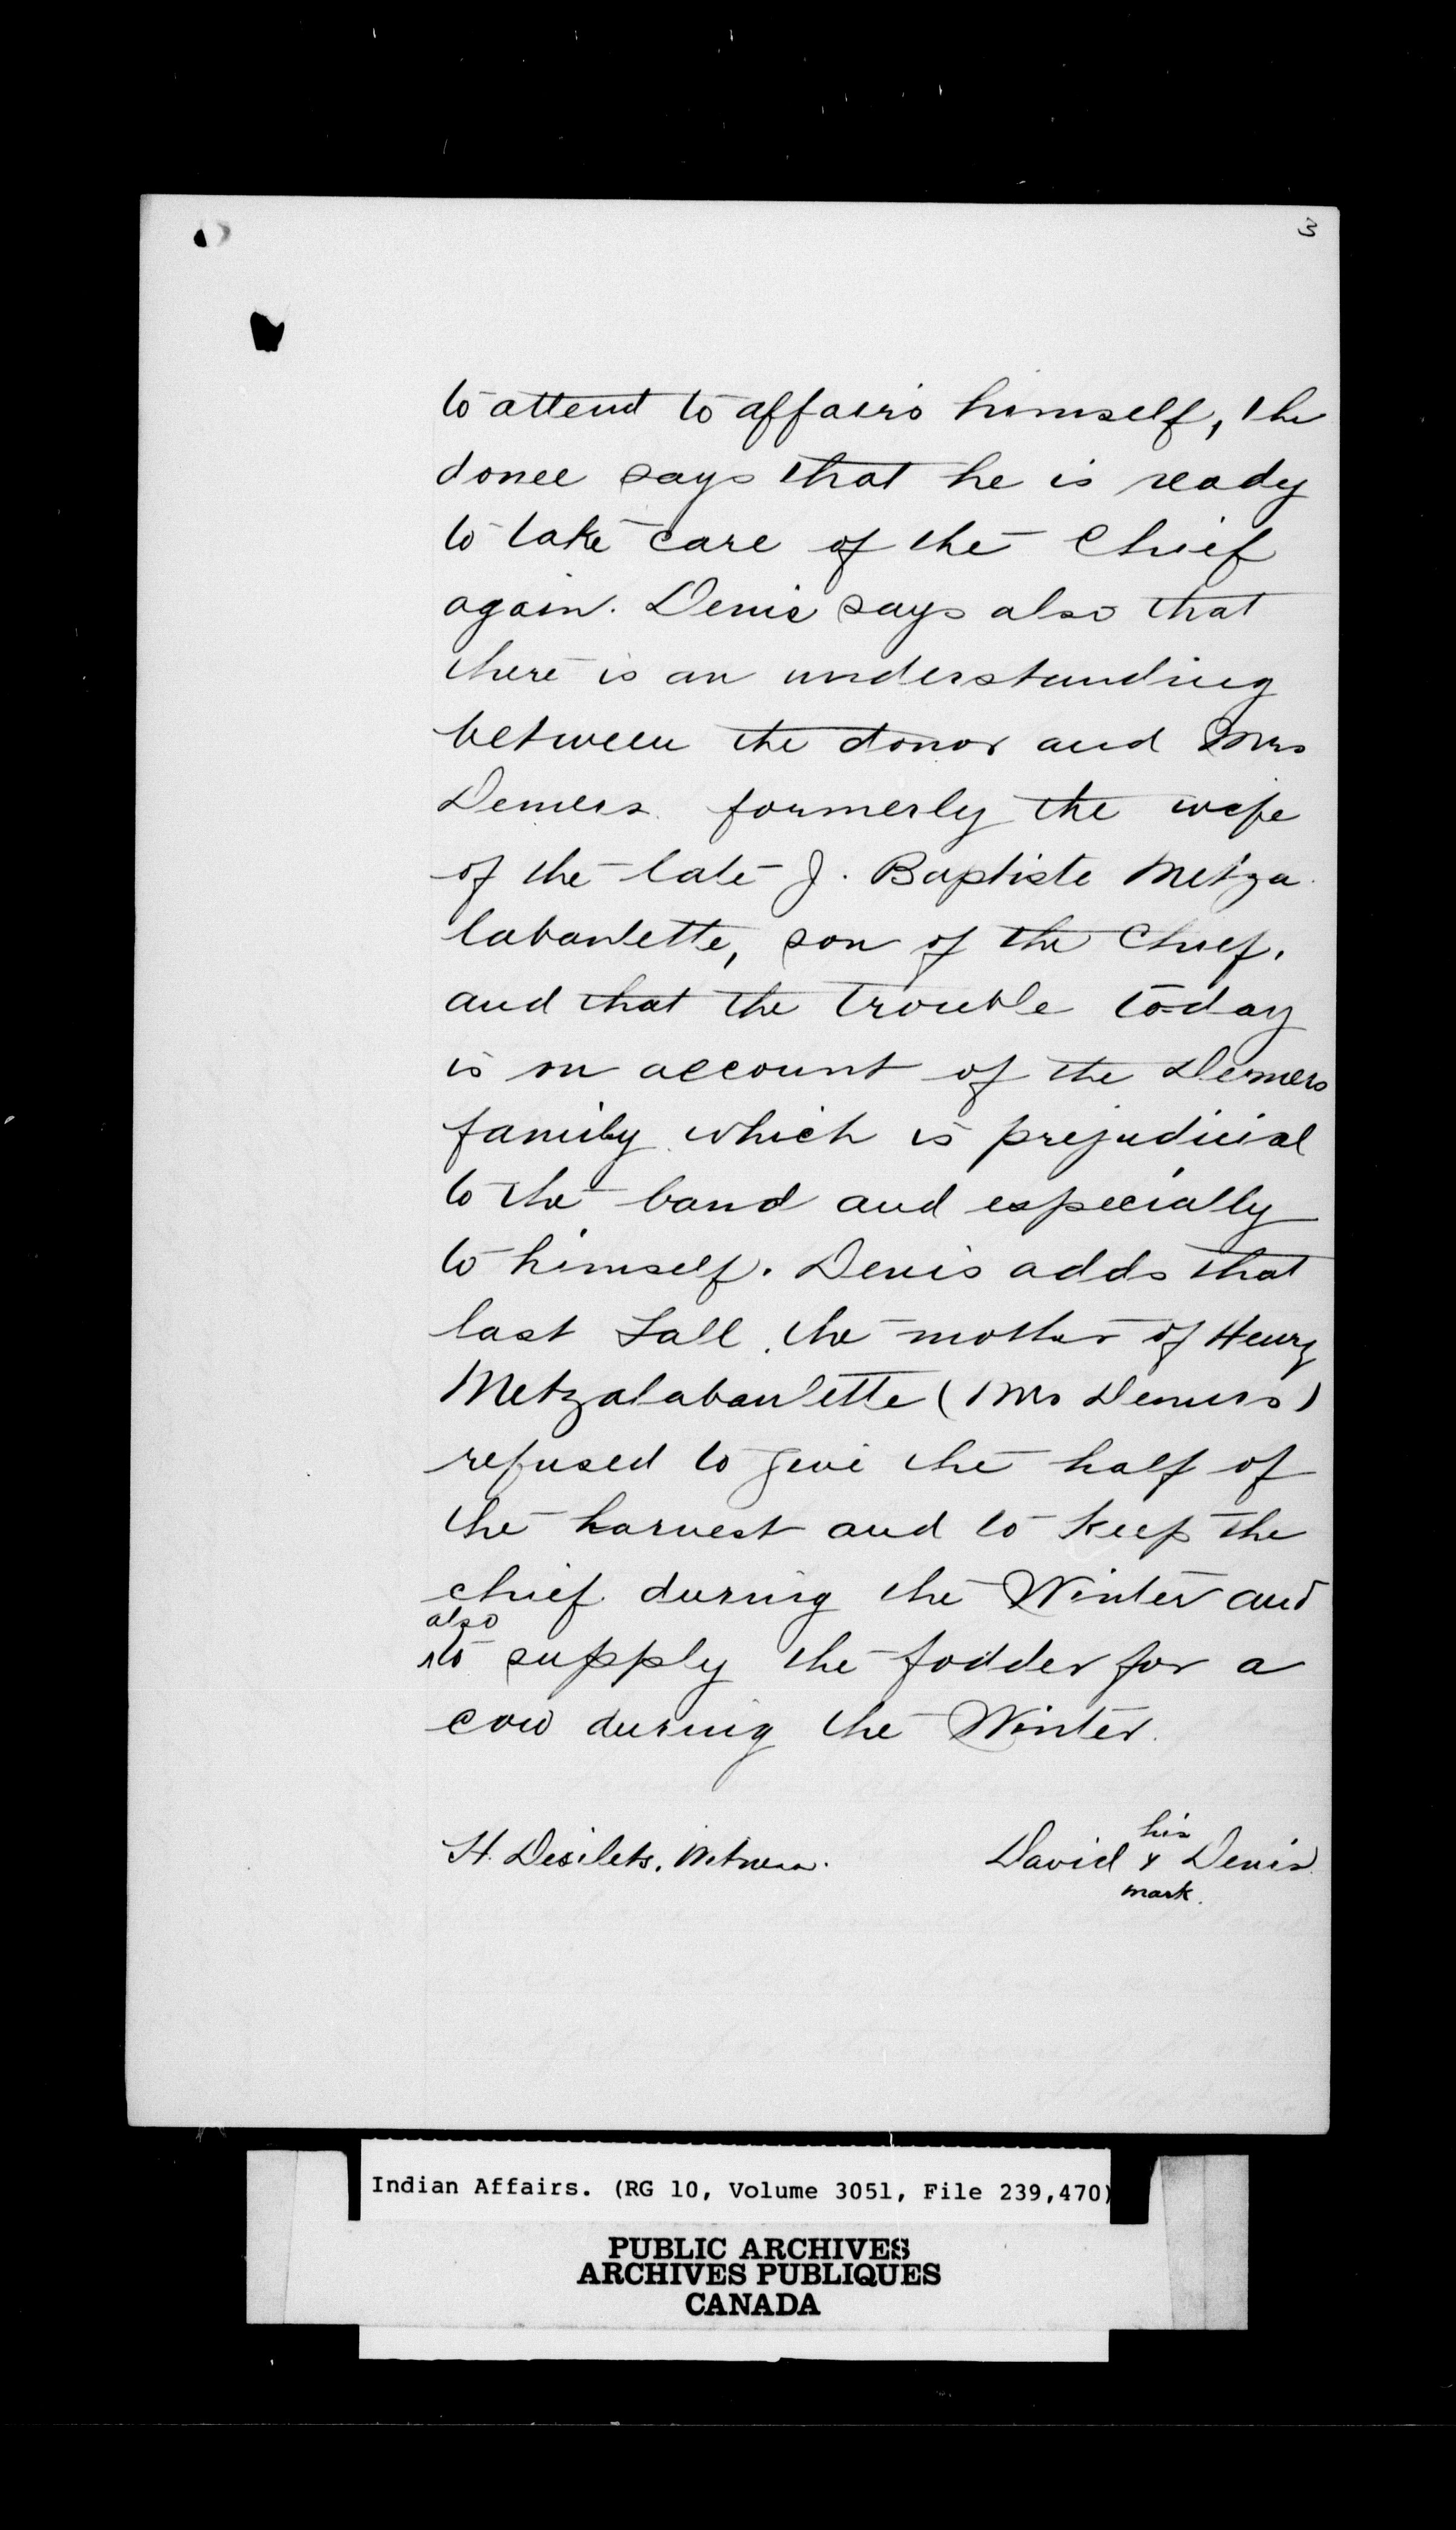 3
to attend to affairs himself, the
donee says that he is ready
to take care of the Chief
again. Denis says also that
there is an understanding
between the donor and Mrs
Demers formerly the wife
of the late J. Baptiste Metza
labanlette, son of the Chief.
and that the trouble today
is on account of the Demers
family which is prejudicial
to the band and especially
to himself. Denis adds that
last Fall, the mother of Henry
Metzalabanlette (Mrs Demers)
refused to give the half of
the harvest and to keep the
chief during the Winter and
also
to supply the fodder for a
cow during the Winter.
his
H. Desilets. Witness. David x Denis
mark.
Indian Affairs. (RG 10, Volume 3051, File 239,470)
PUBLIC ARCHIVES
ARCHIVES PUBLIQUES
CANADA